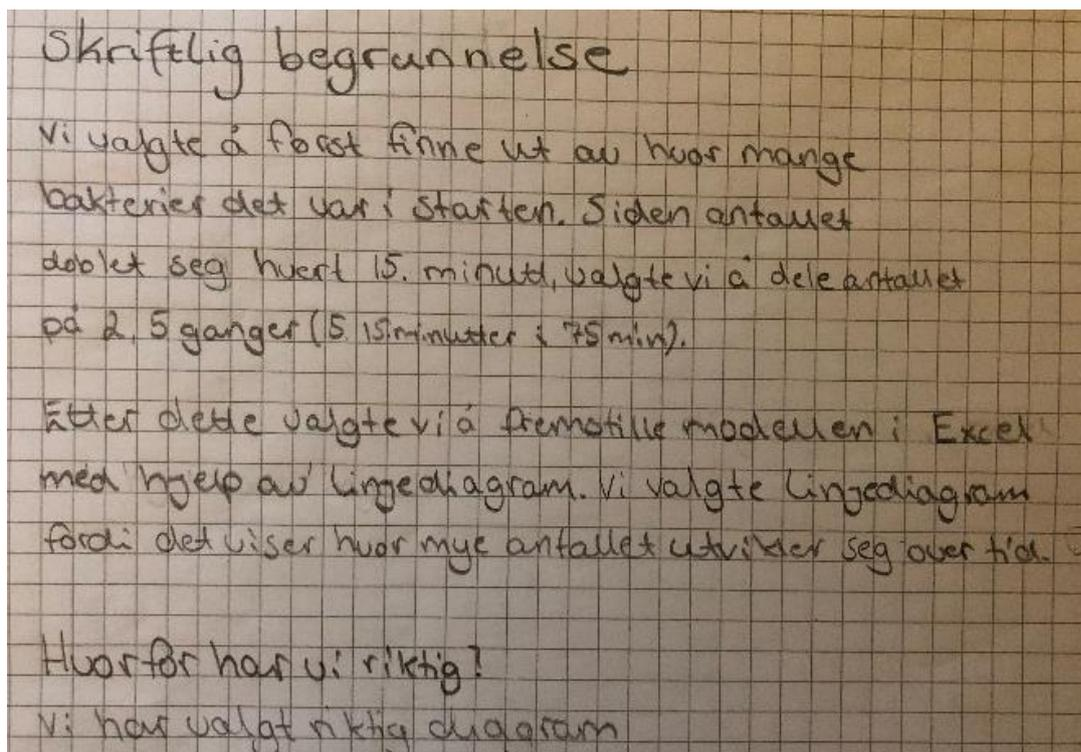 Skriftlig begrunnelse
Vi valgte å først finne ut av hvor mange
bakterier det var i starten. Siden antallet
doblet seg hvert 15. minutt, valgte vi å dele antallet
på 2, 5 ganger (5 15 minutter i 75 min).
Etter dette valgte vi å fremstille modellen i Excel
med hjelp av lingediagram. Vi valgte lingediagram
fordi det viser hvor mye antallet utvikler seg over tid.
Hvorfor har vi riktig?
Vi har valgt riktig diagram